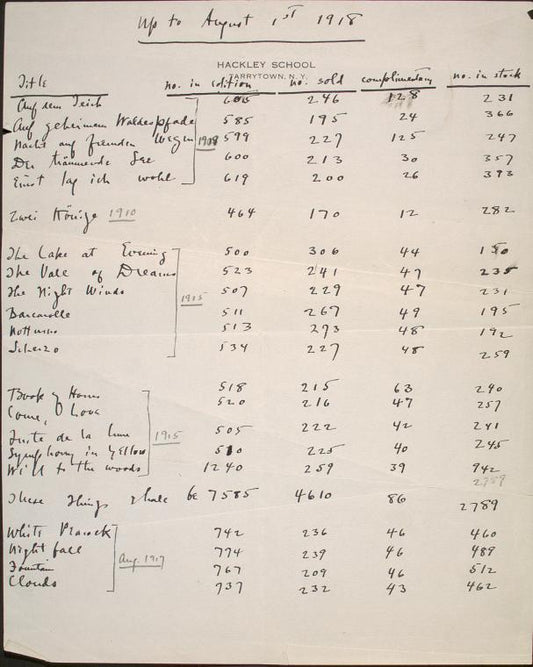 Up to August 1st 1918
HACKLEY SCHOOL
TARRYTOWN, N.Y.
Title no. in edition no. sold complimentary no. in stock
Auf dem Teich 605 246 128 231
Auf geheimem Waldespfade 585 195 24 366
Nacht auf fremden Wegen 1908 599 227 125 247
Der träumende See 600 213 30 357
Einst lag ich wohl 619 200 26 393
Zwei Könige 1910 464 170 12 282
The Lake at Evening 500 306 44 150
The Vale of Dreams 523 241 47 235
The Night Winds 507 229 47 231
1915
Barcarolle 511 267 49 195
Notturno 513 273 48 192
Scherzo 534 227 48 259
Book of Hours 518 215 63 240
Come, Love 520 216 47 257
de la lune 1915 505 222 42 241
Symphony in Yellow 510 225 40 245
Will to the woods 1240 259 39 942
2789
These things shall be 7585 4610 86 2789
White Peacock 742 236 46 460
Night fall 774 239 46 489
Fountain Aug. 1917 767 209 46 512
Clouds 737 232 43 462